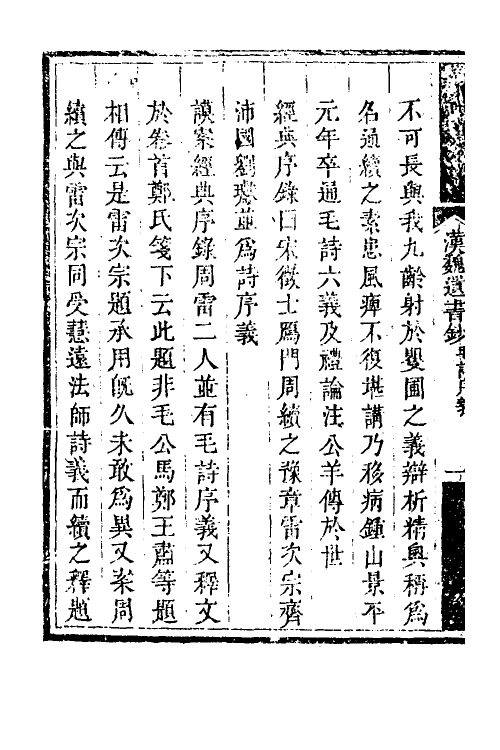 不可長與我九齡射於矍圃之義辯析精奧稱爲
名通續之素患風痺不復堪講乃移病鍾山景平
元年卒通毛詩六義及禮論注公羊傳於世
經典序錄曰宋徵士鴈門周續之豫章雷次宗齊
沛國劉瓛並爲詩序義
謨案經典序錄周雷二人並有毛詩序義又釋文
於卷首鄭氏箋下云此題非毛公馬鄭王肅等題
相傳云是雷次宗題承用旣久未敢爲異又案周
續之與雷次宗同受慧遠法師詩義而續之釋題
漢魏遺書鈔 毛詩序義